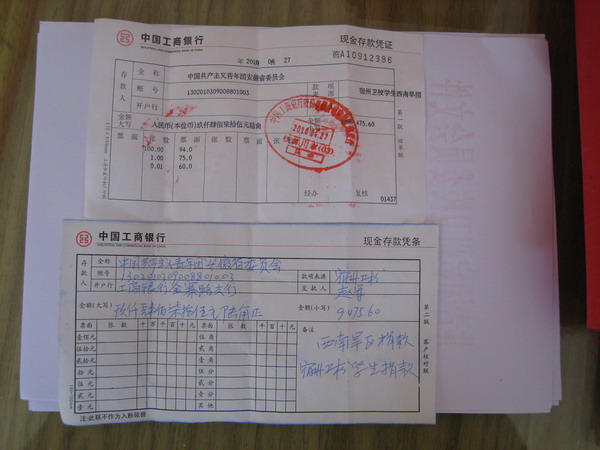 中国工商银行
现金存款凭证
INDUSTRIAL AND COMMERCIAL BANK OF CHINA
年 2010 04 27
皖A10912386
存款人
全称
中国共产主义青年团安徽省委员会
账号
1302010309008801003
开户行
款项
宿州卫校学生西南旱捐
金额大写
人民币(本位币)玖仟肆佰柒拾伍元陆角
475.60
票面 张数 票面 张数 票面 张数
100.00 94.0
1.00 75.0
0.01 60.0
2010.04.27
经办
复核
01437
第一联
回单联
中国工商银行
现金存款凭条
INDUSTRIAL AND COMMERCIAL BANK OF CHINA
存款人
全称
中国共产主义青年团安徽省委员会
账号
1302010309008801003
开户行
工商银行金寨路支行
款项来源
宿州卫校
交款人
金额(大写)
玖仟肆佰柒拾伍元陆角正
金额(小写)
9475.60
票面 张数 十 万 千 百 十 元 票面 张数 千 百 十 元
壹佰元
伍拾元
贰拾元
拾元
伍元
贰元
壹元
伍角
贰角
壹角
伍分
贰分
壹分
其他
备注
西南旱灾捐款
宿州卫校学生捐款
第二联
客户核对联
注:此联不作为入账依据